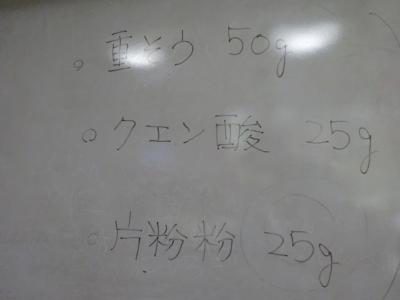 ○ 重そう 50g
○ クエン酸 25g
○ 片粉粉 25g